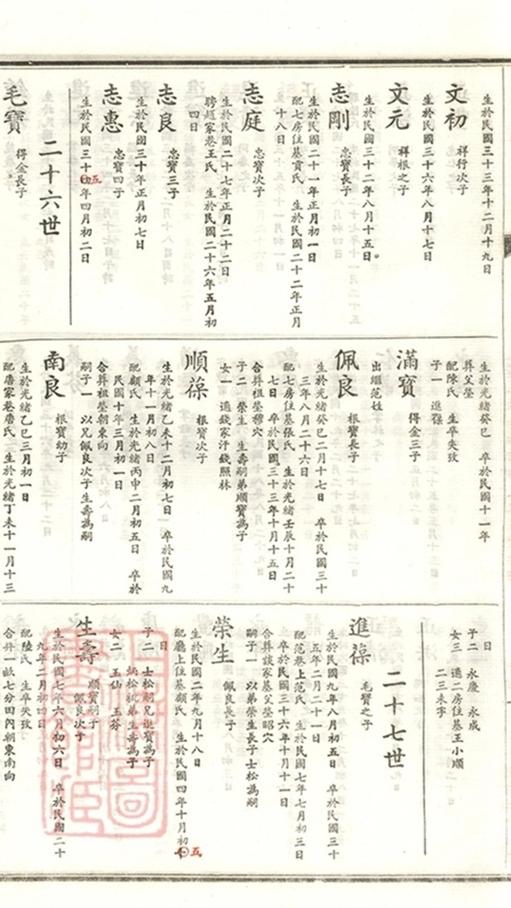 生於民國三十三年十二月十九日
文初 祥行次子
生於民國三十六年八月十七日
文元 祥根之子
生於民國三十二年八月十五日
志剛 忠寶長子
生於民國二十一年正月初一日
配七房住基貢氏 生於民國二十二年正月
十八日
志庭 忠寶次子
生於民國二十七年正月二十二日
聘趙家巷王氏 生於民國二十六年五月初
四日
志良 忠寶三子
生於民國三十年正月初七日
志惠 忠寶四子
生於民國三十五年四月初二日
二十六世
毛寶 得金長子
生於光緒癸巳 卒於民國十一年
葬父塋
配陳氏 生卒失攷
子一 進葆
滿寶 得金三子
出繼范姓
佩良 根寶長子
生於光緒癸巳二月十七日 卒於民國三十
三年八月二十六日
配七房住基張氏 生於光緒壬辰十月二十
七日 卒於民國三十三年十月十五日
合葬祖塋穆穴
子二 榮生 生壽嗣弟順寶為子
女一 適錢家汴錢照林
順葆 根寶次子
生於光緒乙未十二月初七日 卒於民國九
年十一月初八日
配顧氏 生於光緒丙申二月初五日 卒於
民國十年三月初一日
合葬祖塋朝東向
嗣子一 以兄佩良次子生壽為嗣
南良 根寶幼子
生於光緒乙巳三月初一日
配唐家巷唐氏 生於光緒丁未十一月十三
日
子二 永慶 永成
女三 適二房住基王小順
二三未字
二十七世
進葆 毛寶之子
生於民國九年八月初五日 卒於民國三十
五年二月二十一日
配范巷上范氏 生於民國七年七月初三日
卒於民國三十六年十月十一日
合葬談家基父塋昭穴
嗣子一 以弟榮生長子士松為嗣
榮生 佩良長子
生於民國二年九月十八日
配廳上住基顧氏 生於民國四年十月初五
日
子二 士松嗣兄進寶為子
炳松嗣弟生壽為子
女二 玉仙 玉芬
生壽 順寶嗣子
佩良次子
生於民國七年六月初六日 卒於民國二十
九年三月初四日
配陸氏 生卒失攷
合葬一畝七分田內朝東南向